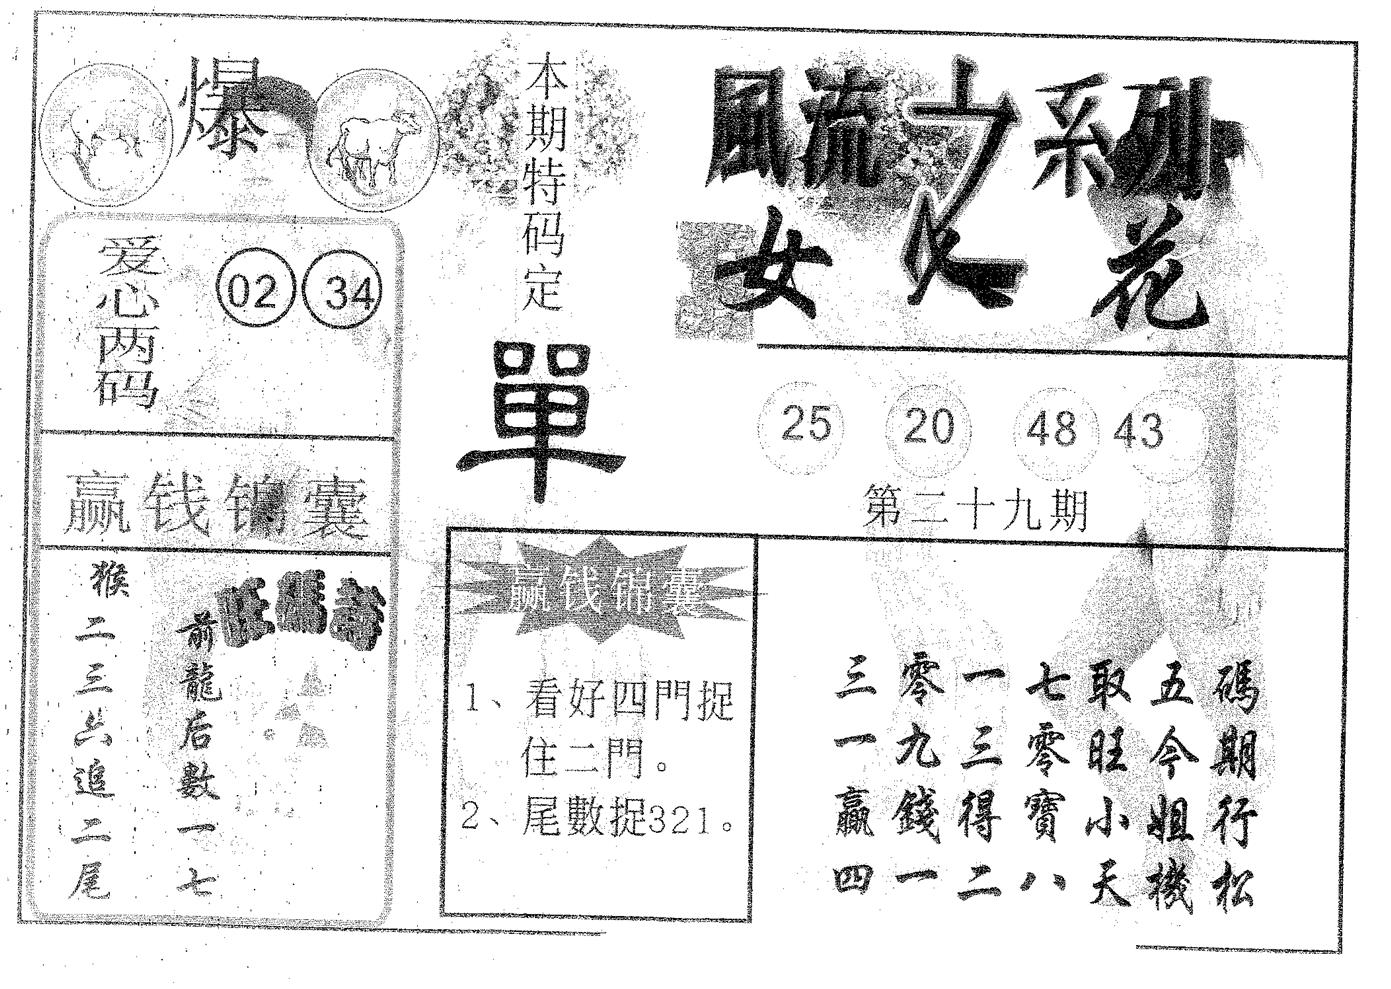 爆
爱心两码
02 34
赢钱锦囊
猴二三六追二尾
前龍后數一七
旺碼詩
本期特码定
單
赢钱锦囊
1、看好四門捉
住二門。
2、尾數捉321。
風流之系列
女人花
25 20 48 43
第二十九期
三零一七取五碼
一九三零旺今期
贏錢得寶小姐行
四一二八天機松